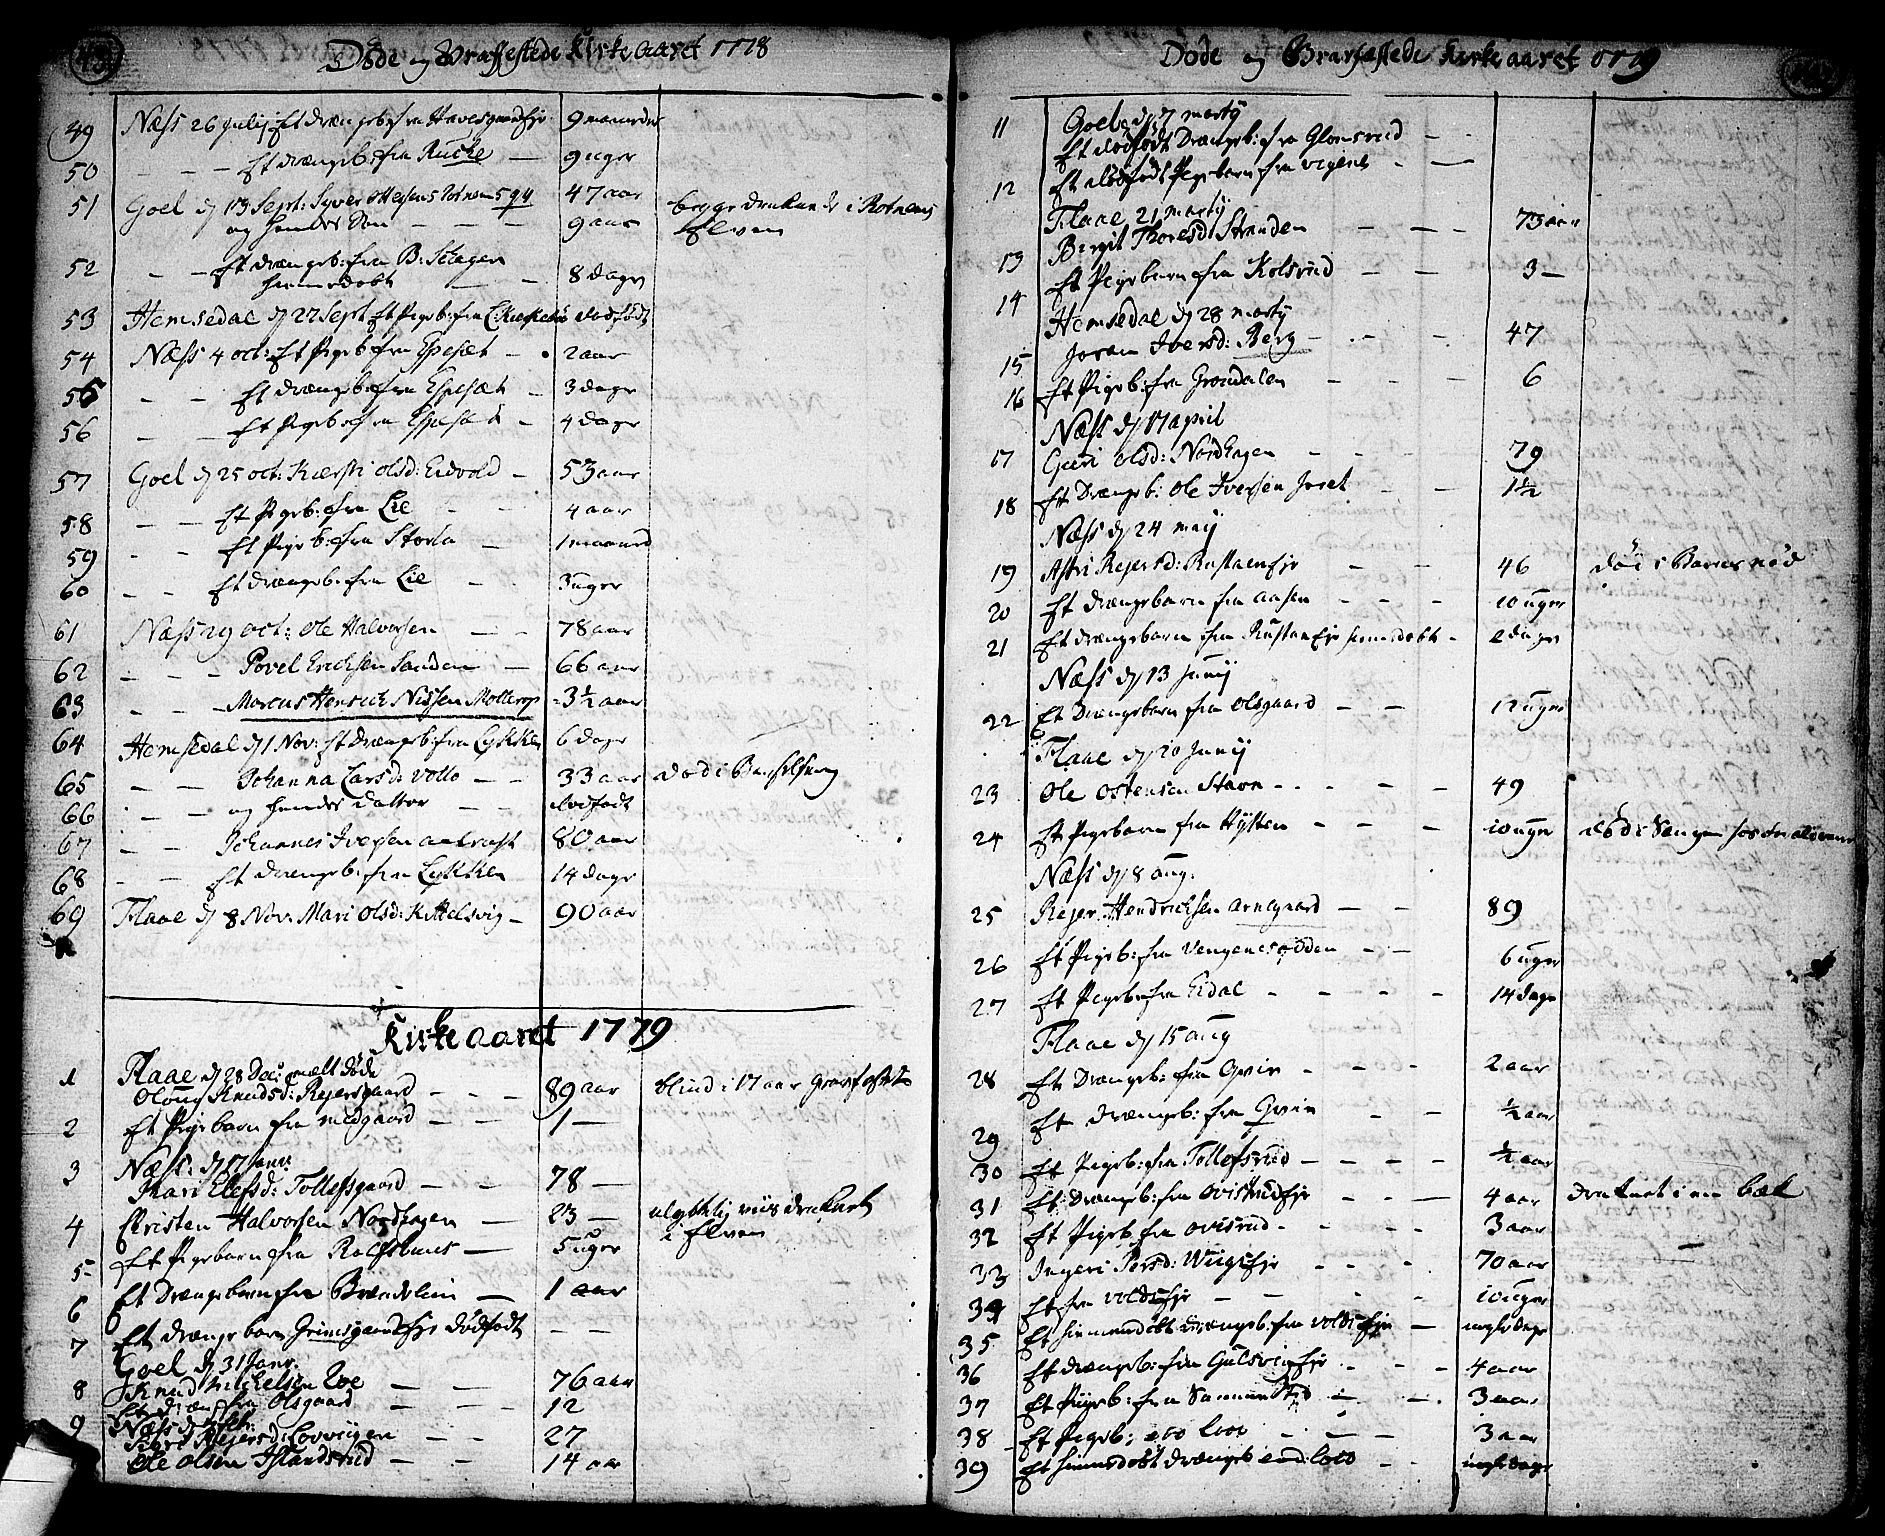 Døde og Graffestede Kirke aaret 1778
49 Næss 26 Julij Et drængeb: fra 9 maaneder
50 — — Et drængeb: fra Rucke — 9 uger
51 Goel d 13 Sept: Syver 47 aar begge druknede i
og hendes Søn — — 9 aar Elven
52 — — Et drængeb: fra B:
hiemedøbt — — 8 dage
53 Hemsedal d 27 Sept Et Pigeb: fra dødfødt
54 Næss 4 oct: Et Pigeb fra Espesæt — 2 aar
55 — — Et drængeb: fra Espesæt — 3 dage
56 — — Et Pigeb: fra Espesæt — 4 dage
57 Goel d 25 oct: Kiersti olsd: Eidvold — 53 aar
58 — — Et Pigeb: fra Lie — 4 aar
59 — — Et Pigeb: fra Storla — 1 maaned
60 — — Et drængeb: fra Lie — 3 uger
61 Næss 29 oct: Ole Halvorsen — — 78 aar
62 — — — Povel Erichsen Sanden — 66 aar
63 — — Marcus Henrich Nissen Mollerop 3½ aar
64 Hemsedal d 1 Nov: Et drængeb: fra Lykken 6 dage
65 — — Johanna Larsd: Vollo — — 33 aar død i Barselseng
66 — — og hendes datter — — dødfødt
67 — — Johannes Iversen 80 aar
68 — — Et drængeb: fra Lykken 14 dage
69 Flaae d 8 Nov: Mari Olsd: Kittelsvig — 90 aar
Kirke aaret 1779
1 Flaae d 28 Dec: mælt døde
Oloug Knudsd: Rejersgaard — — — 89 aar blind i 17 aar
2 Et Pigebarn fra medgaard — — 1 —
3 Næss: d 17 janv:
Mari Elefsd: Tollefsgaard — — 78 —
4 Christen Halvorsen Nordhagen — 23 — ulyklig viis druknet
i Elven
5 Et Pigebarn fra — 5 uger
6 Et Drængebarn fra — 1 aar
7 Et drængebarn Grimsgaard Eje dødfødt — —
Goel d 31 Janv.
8 Knud Michelsen — — 76 aar
Et dræng fra Olsgaard — — 12
9 Næss d
Sigri Rejersd: — — 27
Ole Olsen Islandsrud — — 14 aar
Døde og Graffestede Kirke aaret 1779
11 Goel d 7 marty
Et dødfødt Drængeb: fra Glomsrud — —
12 Et dødfødt Pigebarn fra — —
Flaae 21 marty
13 Birgit Thoresd: Stranden — — — 73 aar
14 Et Pigebarn fra Kolsrud — — 3 —
Hemsedal d 28 marty
15 Joran Iversd: Berg — — — 47
16 Et Pigeb: fra Grøndalen — — — 6
Næss d 17 april
17 Guri Olsd: Nordhagen — — — 79
18 Et Drængeb: Ole Iversen — — 1½
Næss d 24 maij
19 Astri Rejersd: Rustaneje — — 46 død i Barnes nød
20 Et drængebarn fra Aasen — — — 10 uger
21 Et drængebarn fra Rustaneje hiemedøbt — 2 dage
Næss d 13 Junij
22 Et Drængebarn fra Olsgaard — — 12 uger
Flaae d 20 Junij
23 Ole Ostensen Stavn — — — 49
24 Et Pigebarn fra — — — 10 uger død i Sengen hos
Næss d 8 aug:
25 Rejer Hendrichsen Arnegaard — — 89
26 Et Pigeb: fra — — 6 uger
27 Et Pigeb: fra Eidal — — — — 14 dage
Flaae d 15 aug
28 Et Drængeb: fra Gvin — — — 2 aar
29 Et drængeb: fra Gvin — — ½ aar
30 Et Pigeb: fra Tollefsrud — — — — ½ aar
31 Et: Drængeb: fra Ovisrudeje — — — 4 aar druknet i en bæk
32 Et Pigeb fra Ovisrud — — — 3 aar
33 Ingeri Persd: — — — 70 aar
34 Et fra Voldseje — — — — 10 uger
35 Et hiemmedøbt drængeb: fra Voldseje — nogle dage
36 Et drængeb: fra Gulsvigeje — — — 4 aar
37 Et Pigeb: fra — — 3 aar
38 Et Pigeb: — — — 3 aar
39 Et hiemedøbt drængeb — — nogle dage